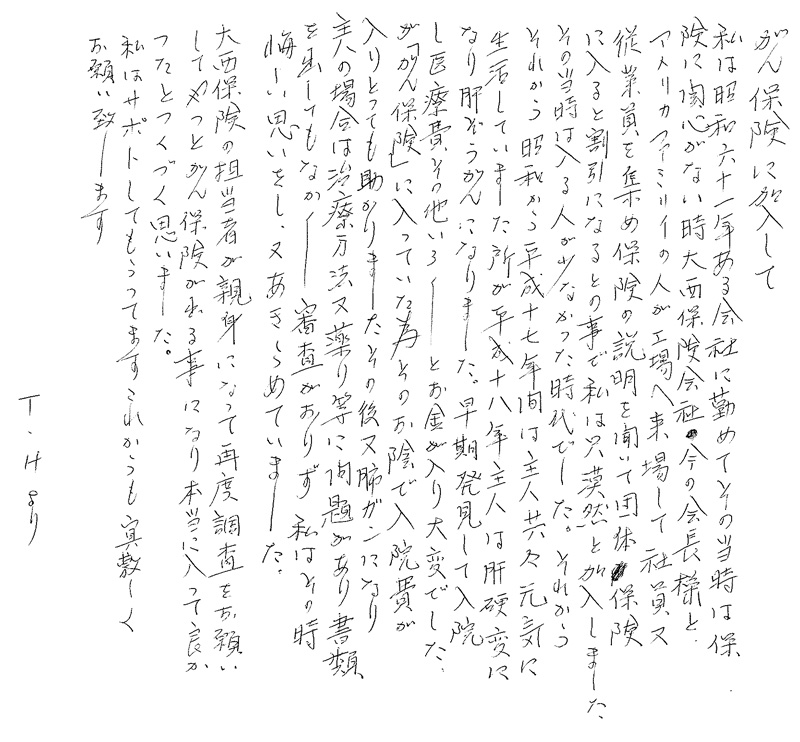 がん保険に加入して
私は昭和六十一年ある会社に勤めてその当時は保
険に関心がない時大西保険会社・今の会長様と
アメリカファミリイの人が工場へ来場して社員又
従業員を集め保険の説明を聞いて団体保険
に入ると割引になるとの事で私は只漠然と加入しました
その当時は入る人が少なかった時代でした。それから
それから昭和から平成十七年間は主人共々元気に
生活していました所が平成十八年主人は肝硬変に
なり肝ぞうがんになりました。早期発見して入院
し医療費その他いろ〱とお金が入り大変でした。
が「がん保険」に入っていた為そのお陰で入院費が
入りとっても助かりましたその後又肺ガンになり
主人の場合は治療方法又薬り等に問題があり書類
を出してもなか〱審査がおりず私はその時
悔しい思いをし、又あきらめていました。
大西保険の担当者が親身になって再度調査をお願い
してやっとがん保険が出る事になり本当に入って良か
ったとつくづく思いました。
私はサポトしてもらってますこれからも宜敷しく
お願い致します
T・Hより